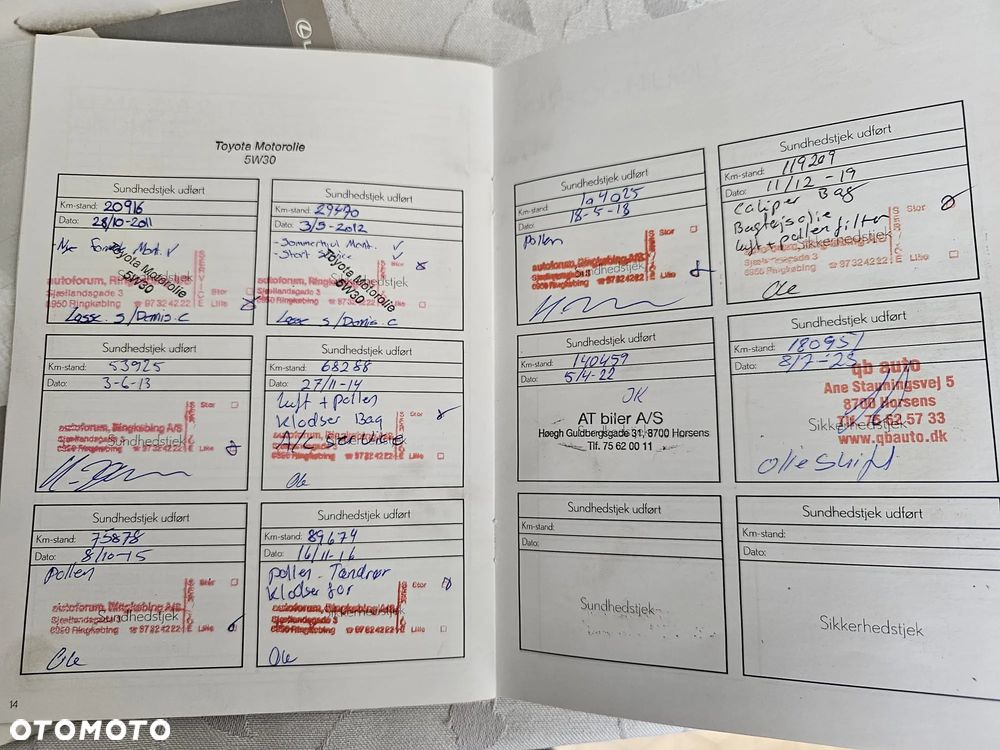 Toyota Motorolie
5W30
Sundhedstjek udført
Km-stand: 20916
Dato: 28/10-2011
Toyota Motorolie
5W30
autoforum, Ringkøbing A/S
Sjællandsgade 3
6950 Ringkøbing ☎ 97 32 42 22
SERVICE
Stor
Lille
Lasse. S/Dennis. C
Sundhedstjek udført
Km-stand: 29490
Dato: 3/5-2012
-Sommerhjul Mont. ✓
-Stort Service ✓
Toyota Motorolie
5W30
autoforum, Ringkøbing
Sjællandsgade 3
6950 Ringkøbing ☎ 97 32 42 22
Lille
Lasse S/Dennis C
Sundhedstjek udført
Km-stand: 53925
Dato: 3-6-13
Sundhedstjek
autoforum, Ringkøbing A/S
Sjællandsgade 3
6950 Ringkøbing ☎ 97 32 42 22
SERVICE
Stor
Lille
Sundhedstjek udført
Km-stand: 68288
Dato: 27/11-14
Luft + pollen
Klodser Bag
A/C
autoforum, Ringkøbing
Sjællandsgade 3
6950 Ringkøbing ☎ 97 32 42 22
Stor
Lille
Ole
Sundhedstjek udført
Km-stand: 75878
Dato: 8/10-15
pollen
Sundhedstjek
autoforum, Ringkøbing A/S
Sjællandsgade 3
6950 Ringkøbing ☎ 97 32 42 22
SERVICE
Stor
Lille
Ole
Sundhedstjek udført
Km-stand: 89674
Dato: 16/11-16
pollen - Tændrør
Klodser for
autoforum, Ringkøbing A/S
Sjællandsgade 3
6950 Ringkøbing ☎ 97 32 42 22
Stor
Lille
Ole
14
Sundhedstjek udført
Km-stand: 104025
Dato: 18-5-18
Pollen
autoforum, Ringkøbing A/S
Sjællandsgade 3
6950 Ringkøbing ☎ 97 32 42 22
Stor
Lille
Sundhedstjek udført
Km-stand: 119209
Dato: 11/12-19
Caliper Bag
Bagtøjsolie
luft + pollenfilter
Sikkerhedstjek
autoforum, Ringkøbing A/S
Sjællandsgade 3
6950 Ringkøbing ☎ 97 32 42 22
SERVICE
Stor
Lille
Ole
Sundhedstjek udført
Km-stand: 140459
Dato: 5/4-22
JK
AT biler A/S
Høegh Guldbergsgade 31, 8700 Horsens
Tlf. 75 62 00 11
Sundhedstjek udført
Km-stand: 180951
Dato: 8/7-25
qb auto
Ane Stauningsvej 5
8700 Horsens
Tlf. 75 62 57 33
www.qbauto.dk
Sikkerhedstjek
olie skift
Sundhedstjek udført
Km-stand:
Dato:
Sundhedstjek
Sundhedstjek udført
Km-stand:
Dato:
Sikkerhedstjek
OTOMOTO